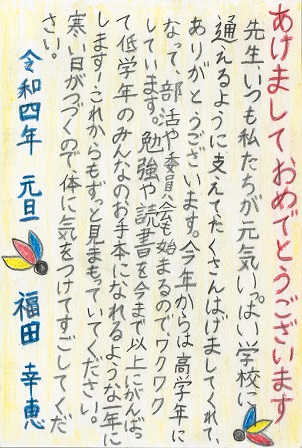 あけましておめでとうございます
先生いつも私たちが元気いっぱい学校に
通えるように支えてたくさんはげましてくれて、
ありがとうございます。今年からは高学年に
なって、部活や委員会も始まるのでワクワク
しています。勉強や読書を今まで以上にがんばっ
て低学年のみんなのお手本になれるような一年に
します！これからもずっと見まもっていてください。
寒い日がつづくので、体に気をつけてすごしてくだ
さい。
令和四年 元旦
福田 幸恵